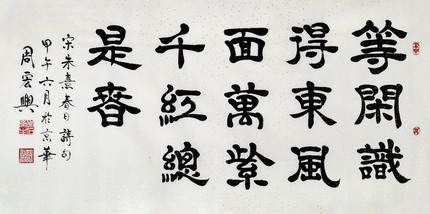 等閑識
得東風
面萬紫
千紅總
是春
宋朱熹春日詩句
甲午六月於京華
周雲興